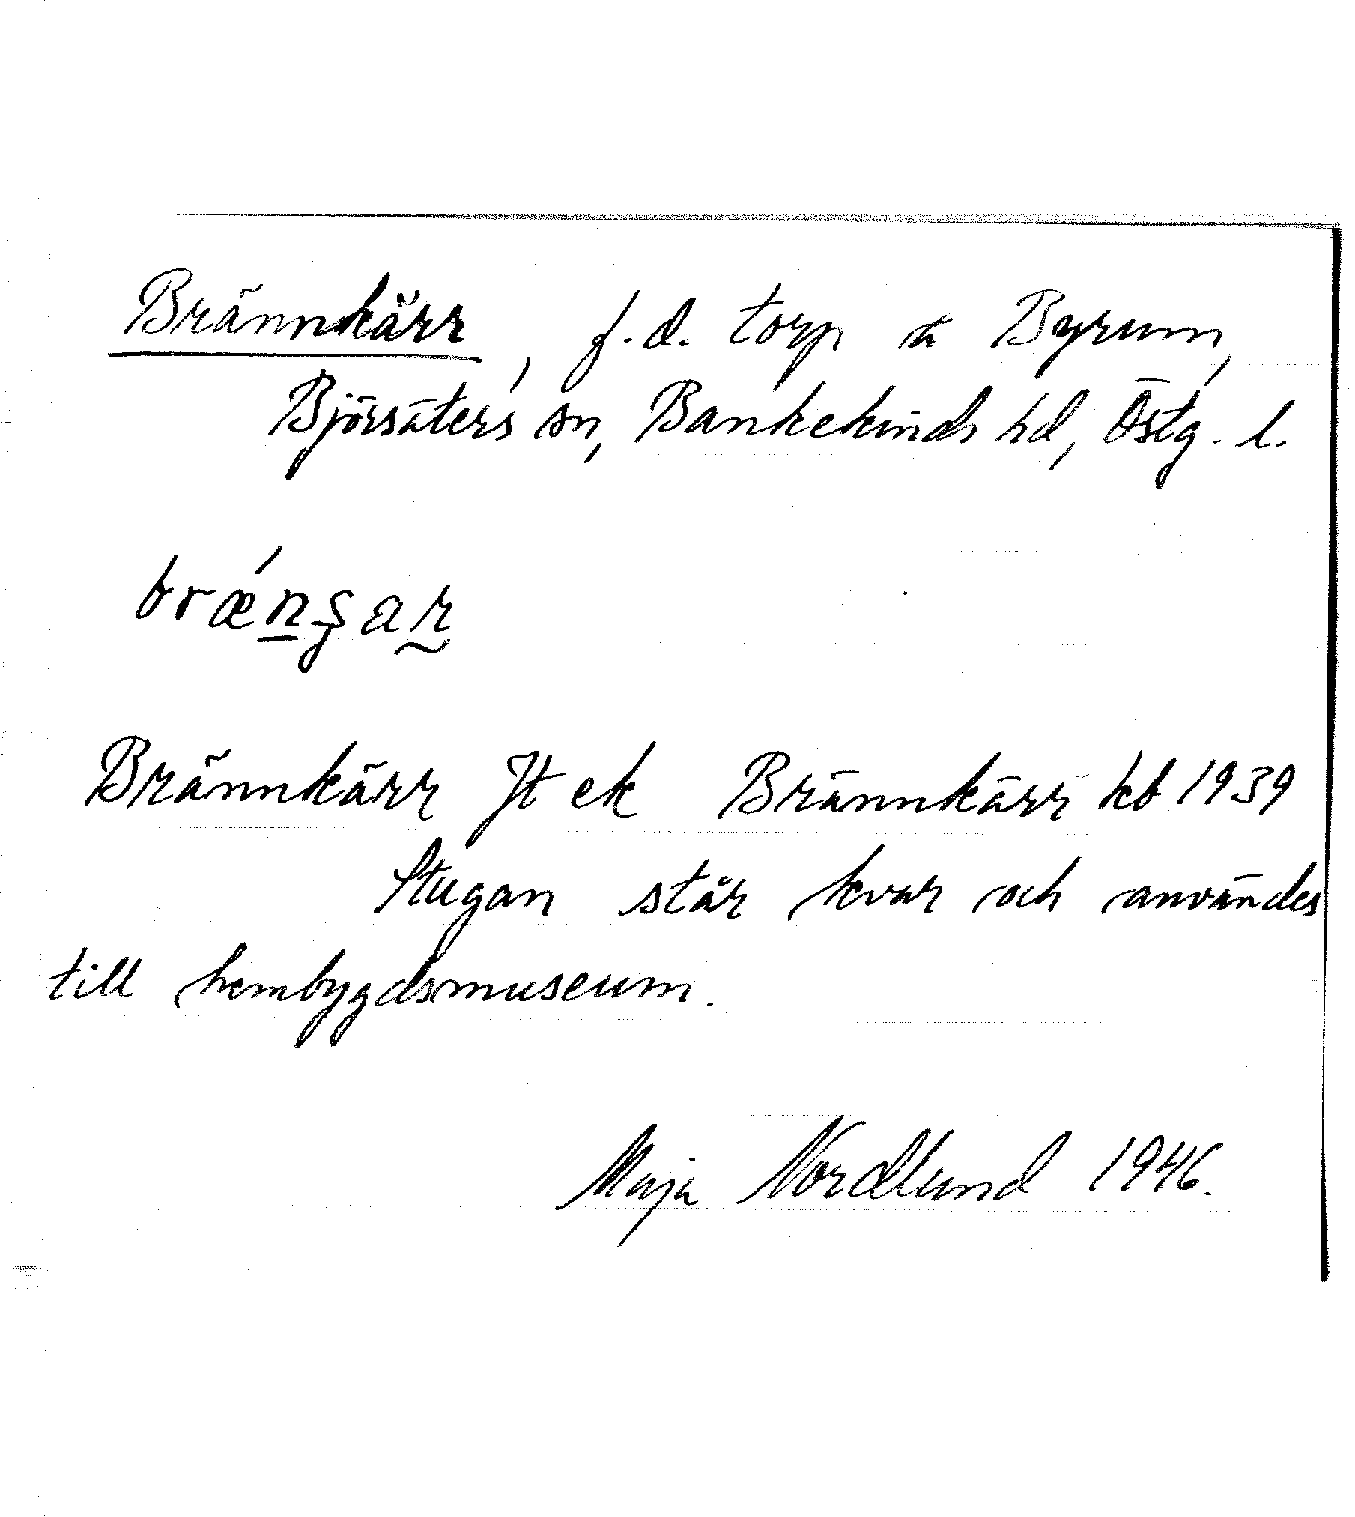 Brännkärr, f.d. torp å Byrum,
Björsäters sn, Bankekinds hd, Östg. l.
brǽnʂar
Brännkärr Jt ek Brännkärr kb 1939
Stugan står kvar och användes
till hembygdsmuseum.
Maja Nordlund 1946.